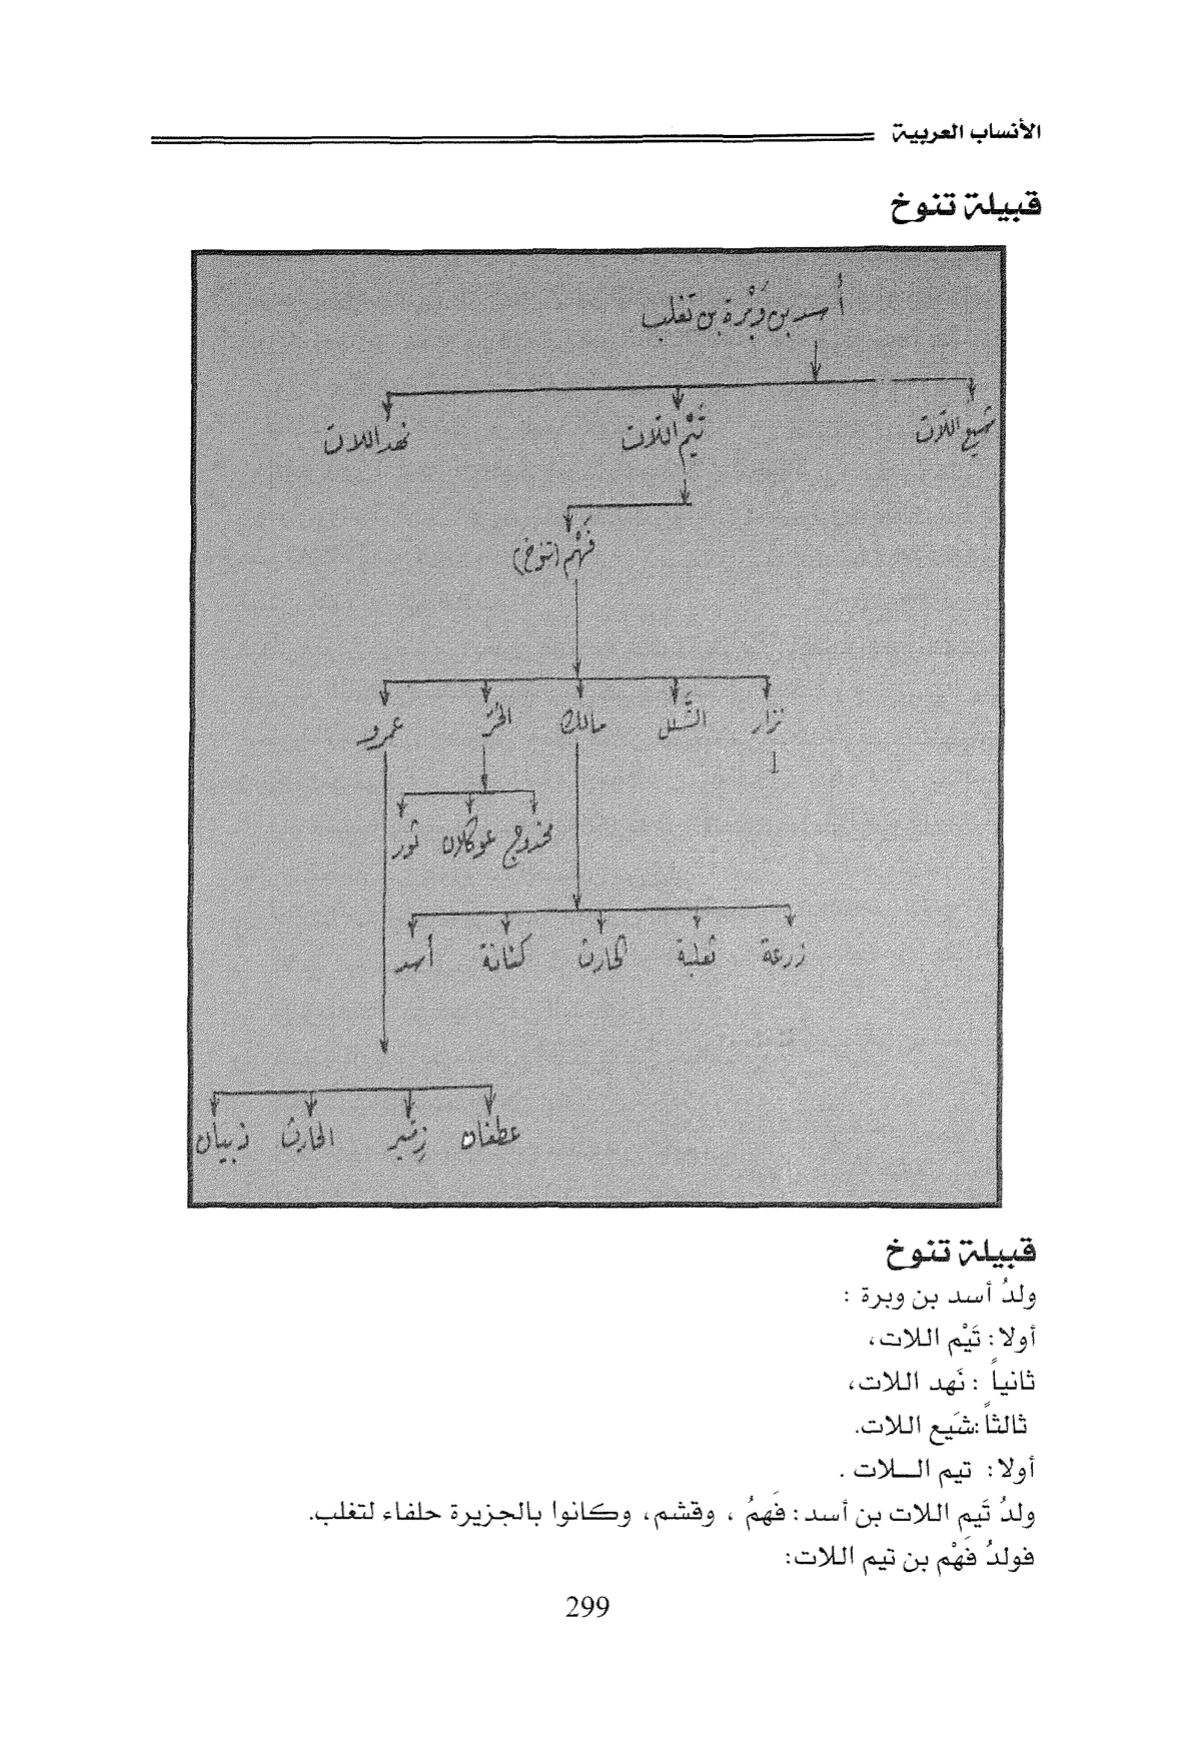 الأنساب العربية
قبيلة تنوخ
أسد بن وَبْرة بن تغلب
شيع اللات تَيْم اللات نهد اللات
فَهْم (تنوخ)
نزار الشَّلل مالك الحُرّ عمرو
مخدوج عوكلان ثور
زرعة ثعلبة الحارث كنانة أسد
عطفان زنير الحارث ذبيان
قبيلة تنوخ
ولدُ أسد بن وبرة :
أولا : تَيْم اللات،
ثانياً : نَهد اللات،
ثالثاً :شَيع اللات.
أولا : تيم الـلات .
ولدُ تَيم اللات بن أسد : فَهمُ ، وقشم، وكانوا بالجزيرة حلفاء لتغلب.
فولدُ فَهْم بن تيم اللات:
299